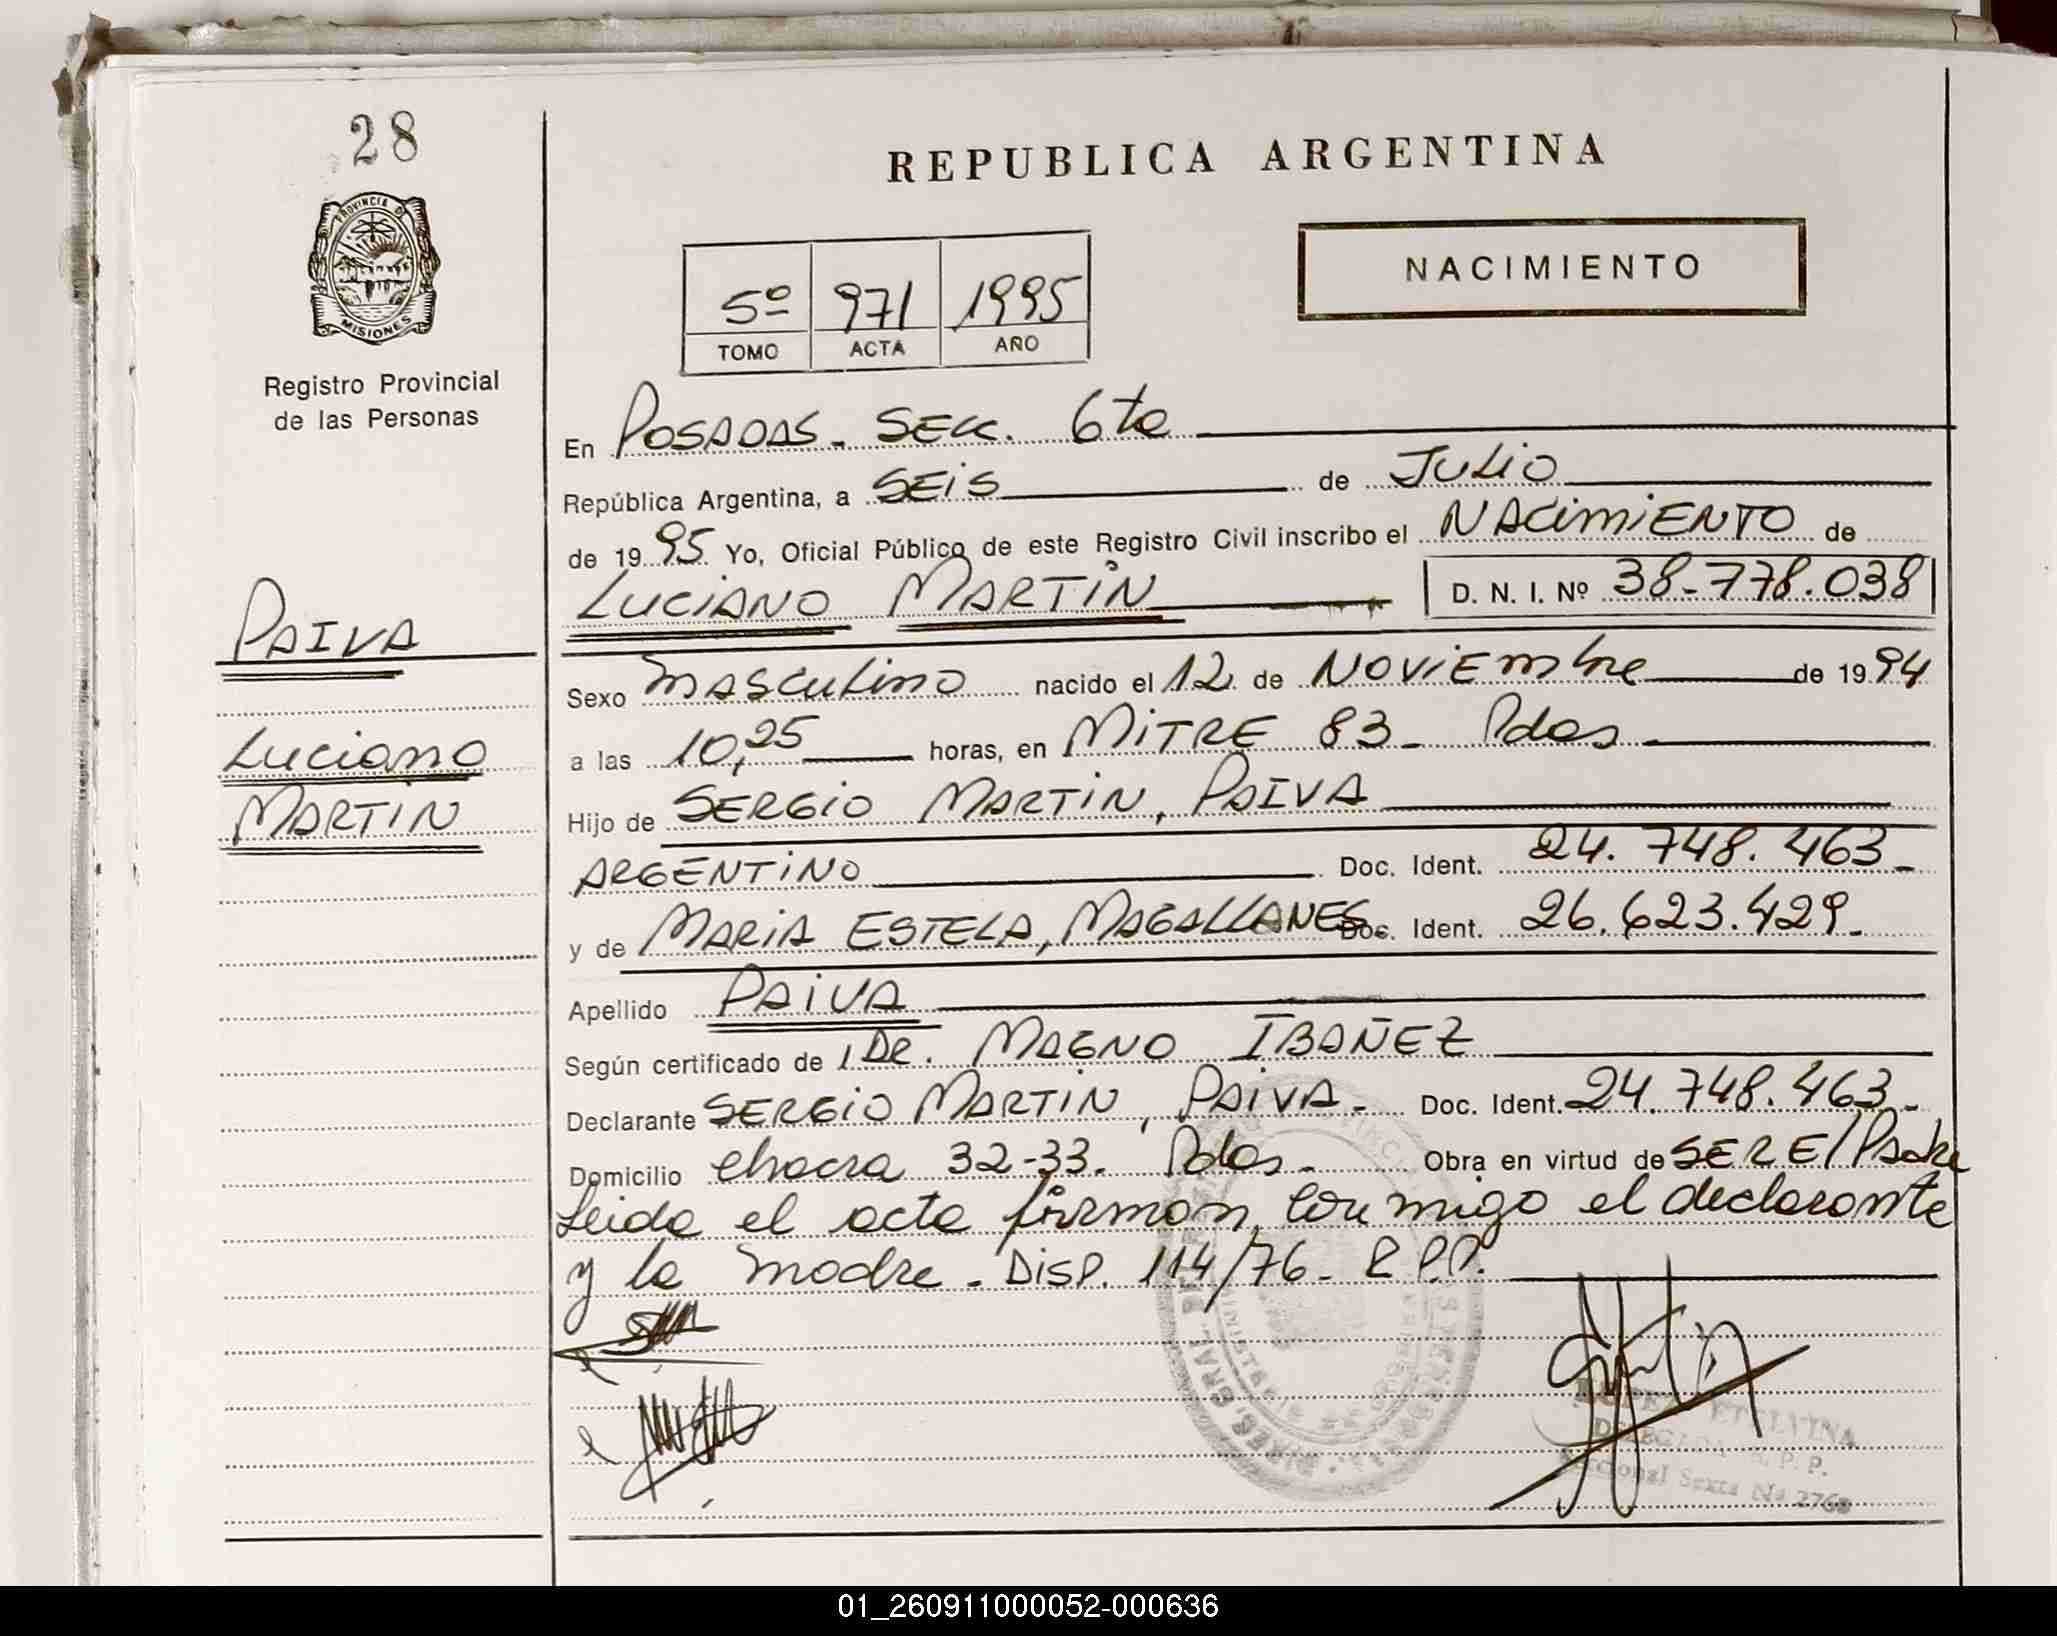 28
REPUBLICA ARGENTINA
PROVINCIA DE
MISIONES
NACIMIENTO
5º 971 1995
TOMO ACTA AÑO
Registro Provincial
de las Personas
En POSADAS - SECC. 6ta
República Argentina, a SEIS de JULIO
de 1995 Yo, Oficial Público de este Registro Civil inscribo el NACIMIENTO de
LUCIANO MARTIN D. N. I. Nº 38-778.038
PAIVA
Luciano
MARTIN
Sexo MASCULINO nacido el 12 de NOVIEMbre de 1994
a las 10,25 horas, en MITRE 83 - Pdas
Hijo de SERGIO MARTIN, PAIVA
ARGENTINO Doc. Ident. 24.748.463-
y de MARIA ESTELA, MAGALLANES Doc. Ident. 26.623.429.
Apellido PAIVA
Según certificado de 1 DR. MAGNO IBAÑEZ
Declarante SERGIO MARTIN, PAIVA - Doc. Ident. 24.748.463-
Domicilio chacra 32-33. Pdas - Obra en virtud de SER E/Padre
Leida el acta firman conmigo el declarante
y la madre - DISP. 114/76 - R.P.P.
ETELVINA
R. P. P.
Seccional Sexta Nº 2768
01_260911000052-000636